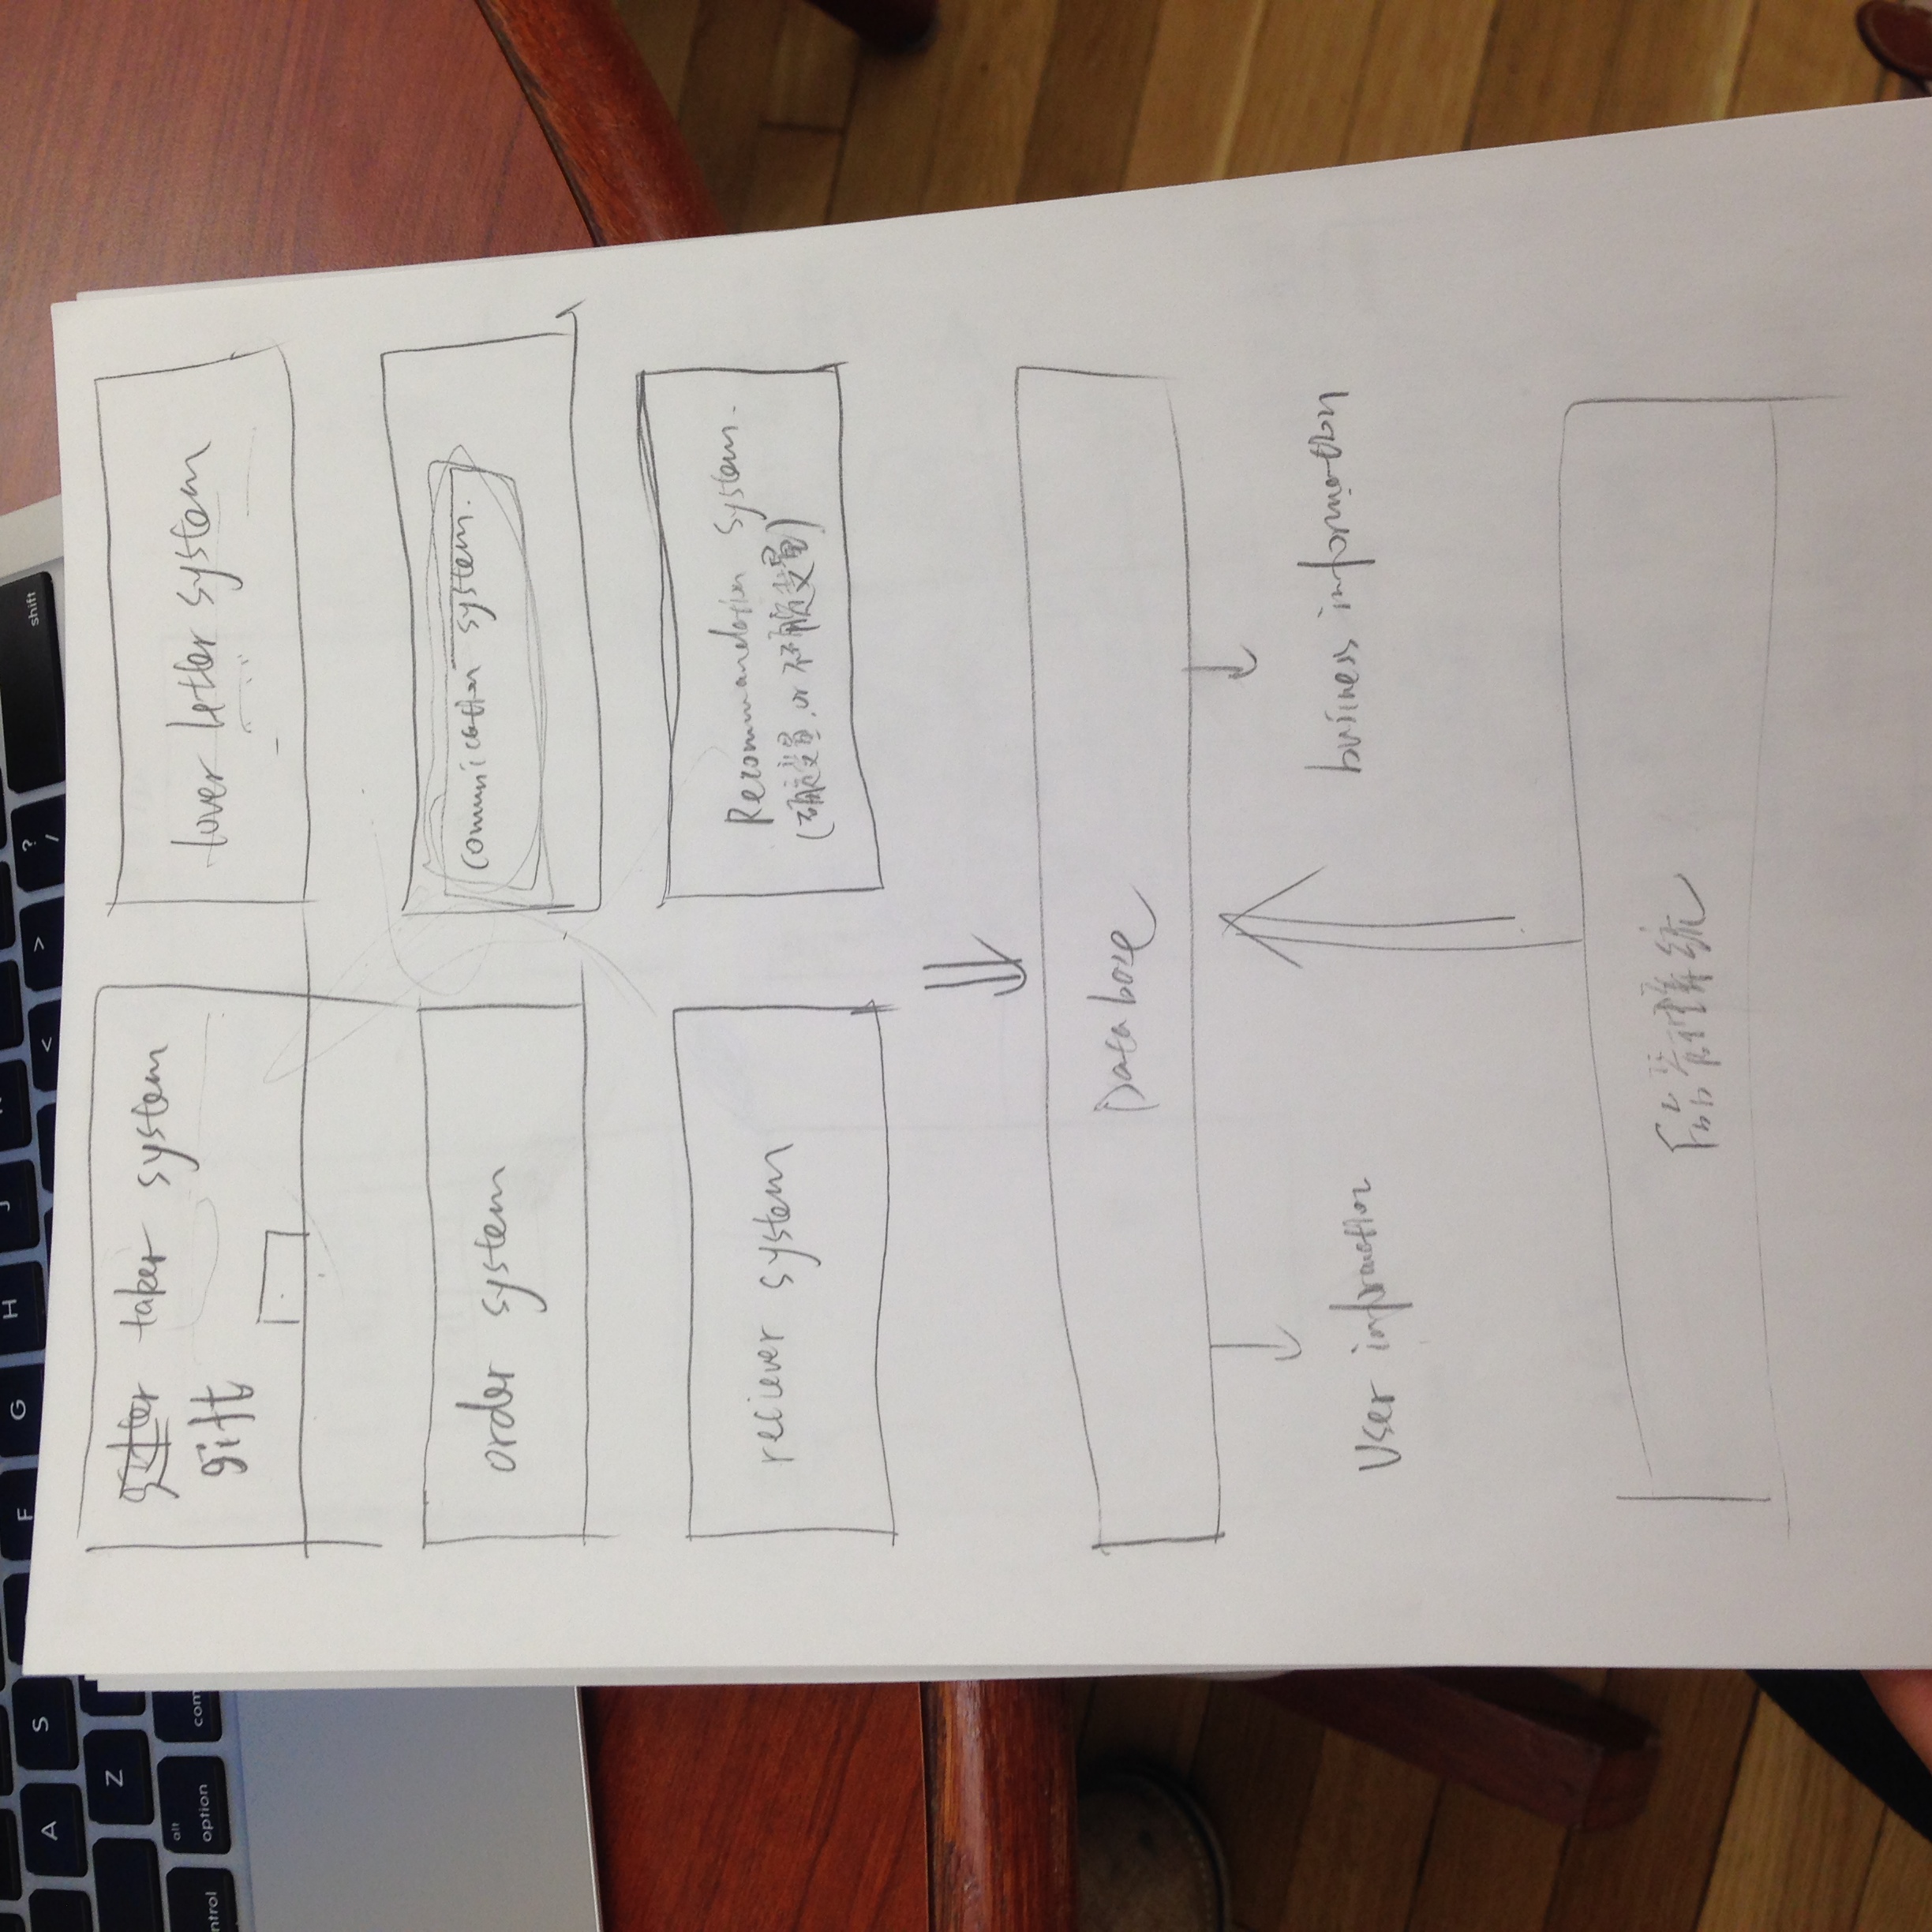 F G H J
A S < > ? / shift
Z
control alt option com
taker system
gift
lover letter system
order system
comunication system.
reciever system
Recommandation system.
(确定变量 or 不确定变量)
Database
User information
business information
品管理系统